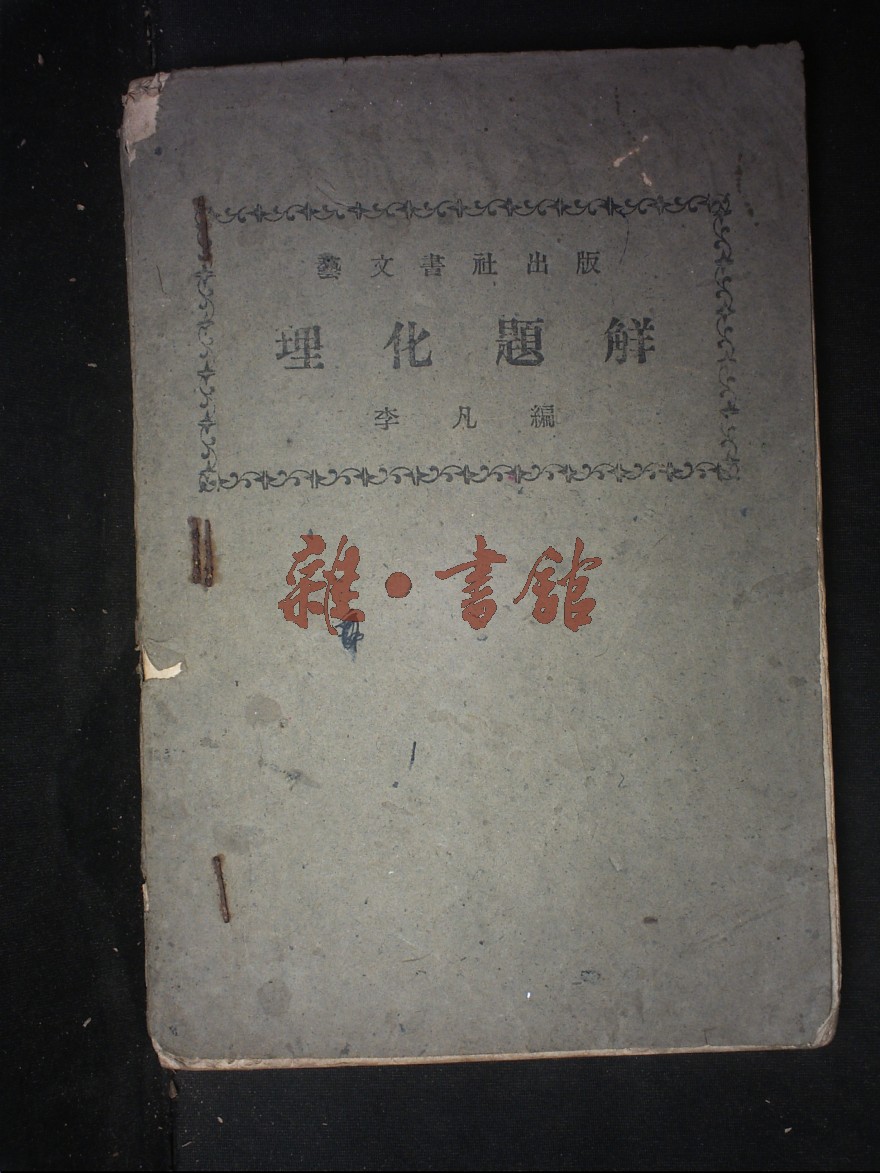 藝文書社出版
理化題解
李凡編
雜·書館